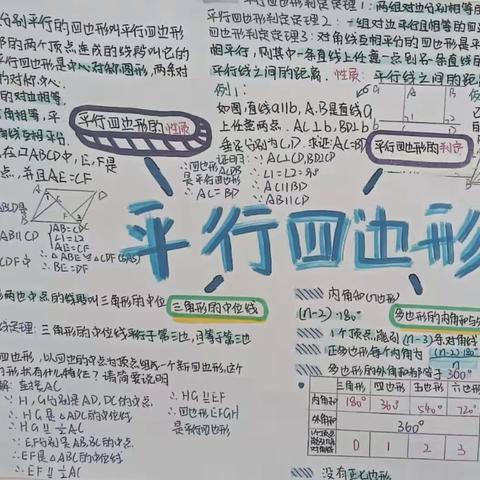 分别平行的四边形叫平行四边形
的两个顶点连成的线段叫它的
平行四边形是中心对称图形,两条对
的对边相等
角相等,平
角线互相平分
平行四边形的性质
在▱ABCD中,E,F是
点,并且AE=CF
AB=CD
∠1=∠2
AE=CF
∴△ABE≌△CDF(SAS)
∴BE=DF
平行四边形判定定理1:两组对边分别相等的
平行四边形判定定理2:一组对边平行且相等的四
四边形判定定理3:对角线互相平分的四边形是平
相平行,则其中一条直线上任意一点到另一条直
平行线之间的距离.性质:平行线之间的距
例1:
如图,直线a∥b,A.B是直线a
上任意两点.AC⊥b,BD⊥b
垂足分别为C,D.求证:AC=BD
证明:∵AC⊥CD,BD⊥CD
∴∠1=∠2=90°
∴AC∥BD
∵AB∥CD
∴四边形
ACDB
是平行四边形
∴AC=BD
平行四边形的判定
平行四边形
两边中点的线段叫三角形的中位
三角形的中位线
定理:三角形的中位线平行于第三边,且等于第三边
四边形,以四边的中点为顶点组成一个新四边形,这个
形形状有什么特征?请简要说明
解:连接AC
∵H,G分别是AD,DC的中点
∴HG是△ADC的中位线
∴HG⫽½AC
∵EF分别是AB,BC的中点
∴EF是△ABC的中位线
∴EF⫽½AC
∴HG⫽EF
∴四边形EFGH
是平行四边形
内角和(n边形)
(n-2)·180°
多边形的内角和与
1个顶点,能引(n-3)条对角线
正多边形每个内角为 (n-2)·180°/n
多边形的外角和都等于300°
三角形 四边形 五边形 六边形
内角和 180° 360° 540° 720°
外角和 360°
0 1 2 3
没有